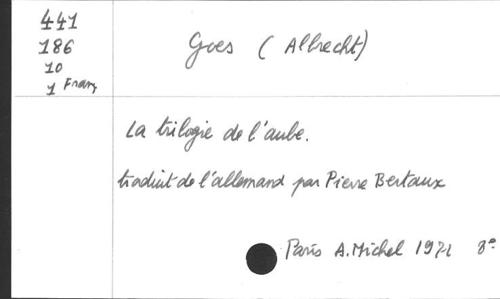 441
186
10
1 Franz
Goes (Albrecht)
La trilogie de l'aube.
traduit de l'allemand par Pierre Bertaux
Paris A. Michel 1971 8°